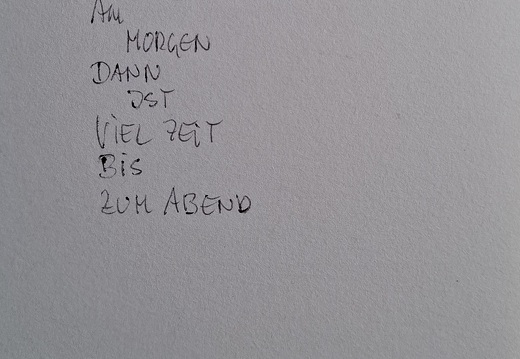 Am
MORGEN
DANN
IST
ViEL ZEiT
BiS
ZUM ABEND